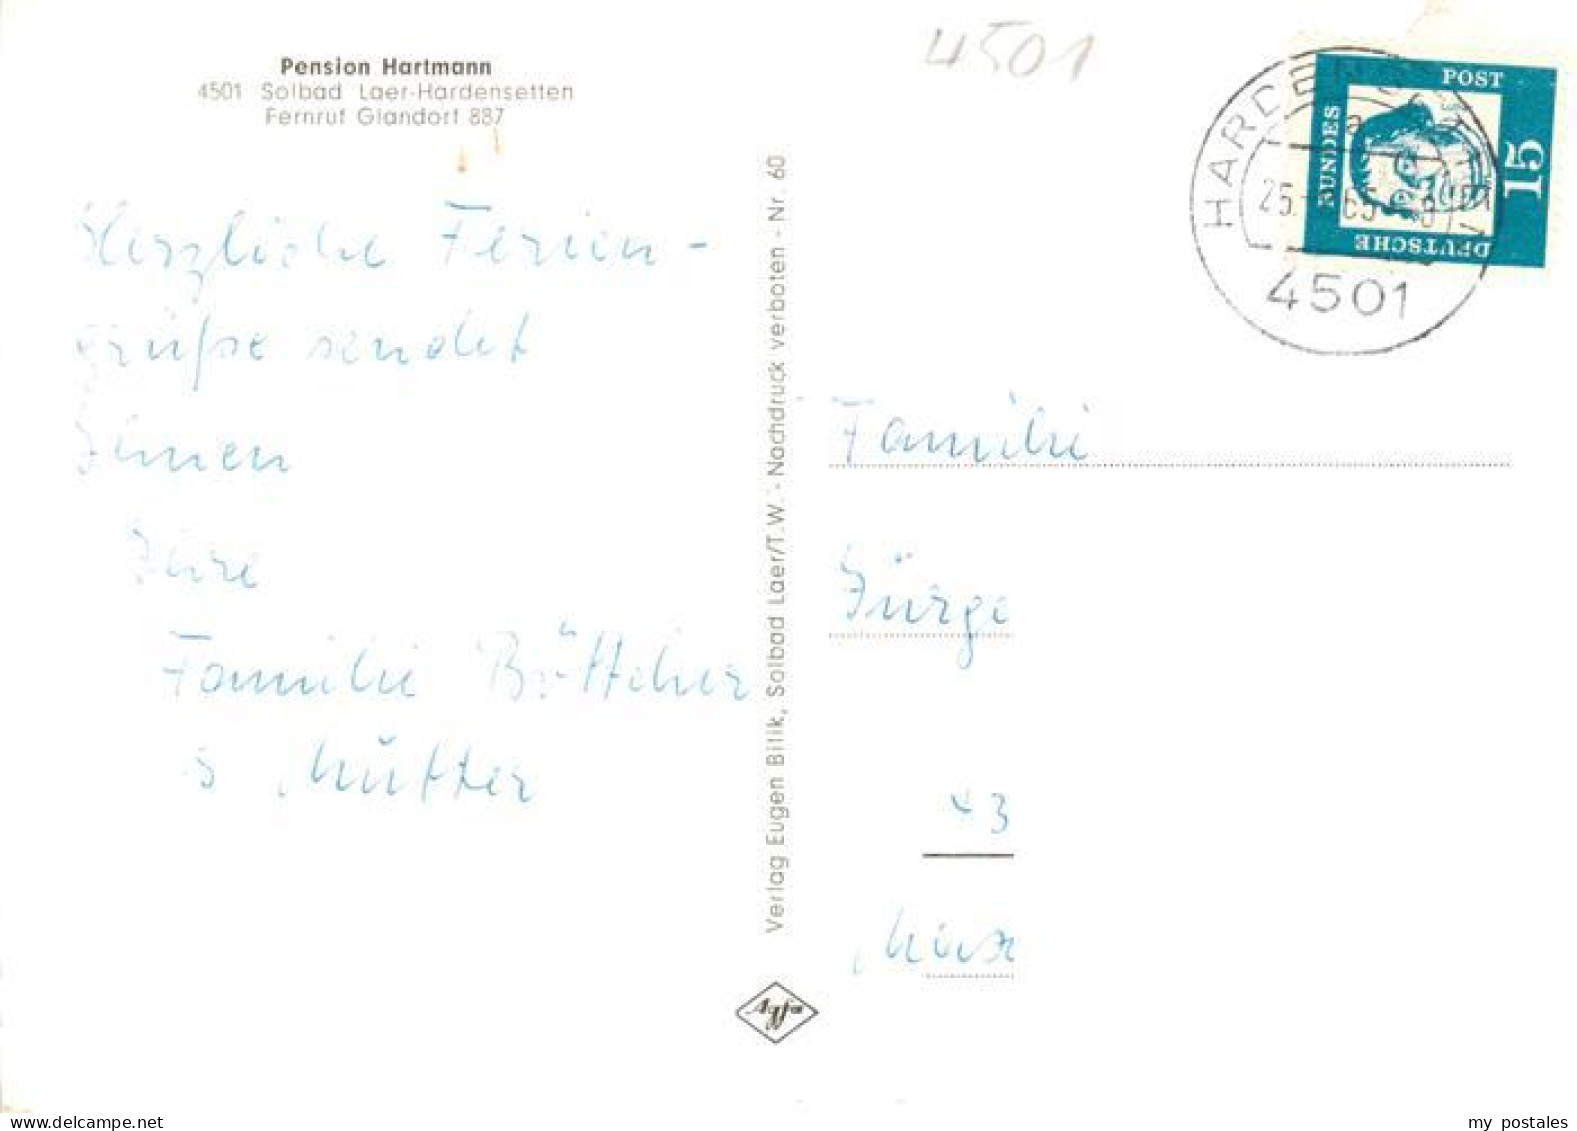 Pension Hartmann
4501 Solbad Laer-Hardensetten
Fernruf Glandorf 887
Herzliche Ferien-
grüße sendet
Ihnen
Ihre
Familie Böttcher
u Mutter
Verlag Eugen Bilik, Solbad Laer/T.W. - Nachdruck verboten - Nr. 60
Agfa
4501
POST
BUNDES
DEUTSCHE
15
4501
Familie
Jürge
43
www.delcampe.net
my_postales